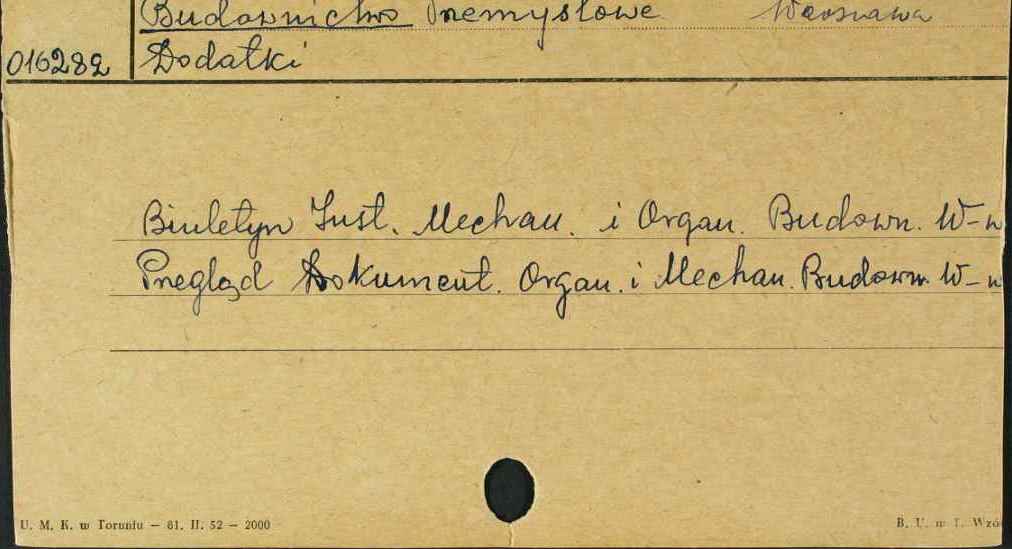 Budownictwo Przemysłowe Warszawa
016282 Dodatki
Biuletyn Inst. Mechan. i Organ. Budown. W-w
Przegląd Dokument. Organ. i Mechan. Budown. W-w
U. M. K. w Toruniu — 61. II. 52 — 2000 B. U. w T. Wzó